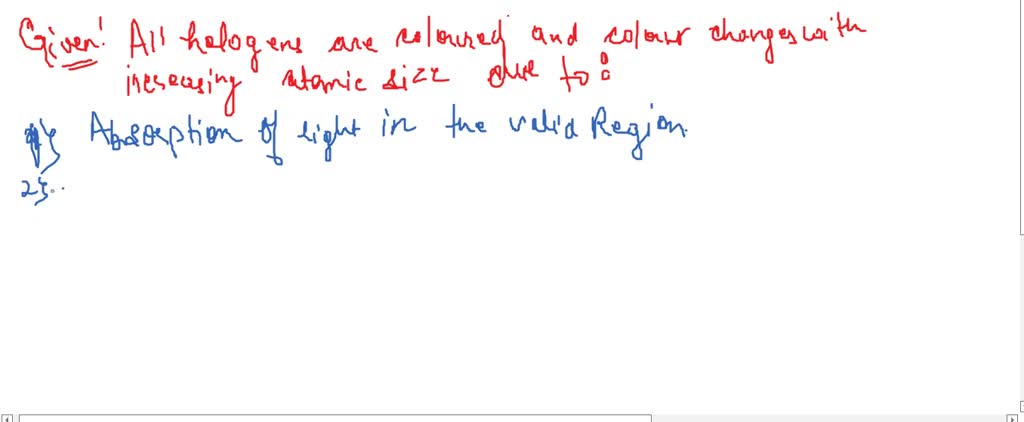 Given! All halogens are coloured and colour changes with
increasing atomic size due to:
1} Absorption of light in the valid Region.
2}..